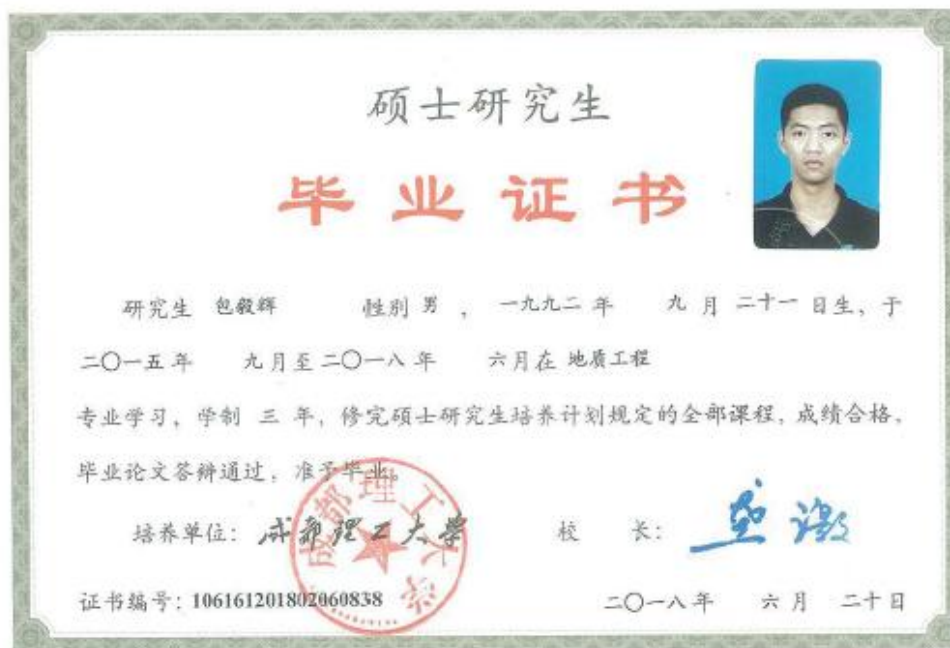 硕士研究生
毕业证书
研究生 包毅辉 性别 男 , 一九九二 年 九 月 二十一 日生, 于
二〇一五 年 九 月至 二〇一八 年 六月在 地质工程
专业学习, 学制 三 年, 修完硕士研究生培养计划规定的全部课程, 成绩合格,
毕业论文答辩通过, 准予毕业。
培养单位: 成都理工大学 校 长:
成都理工大学
证书编号: 106161201802060838 二〇一八 年 六 月 二十 日